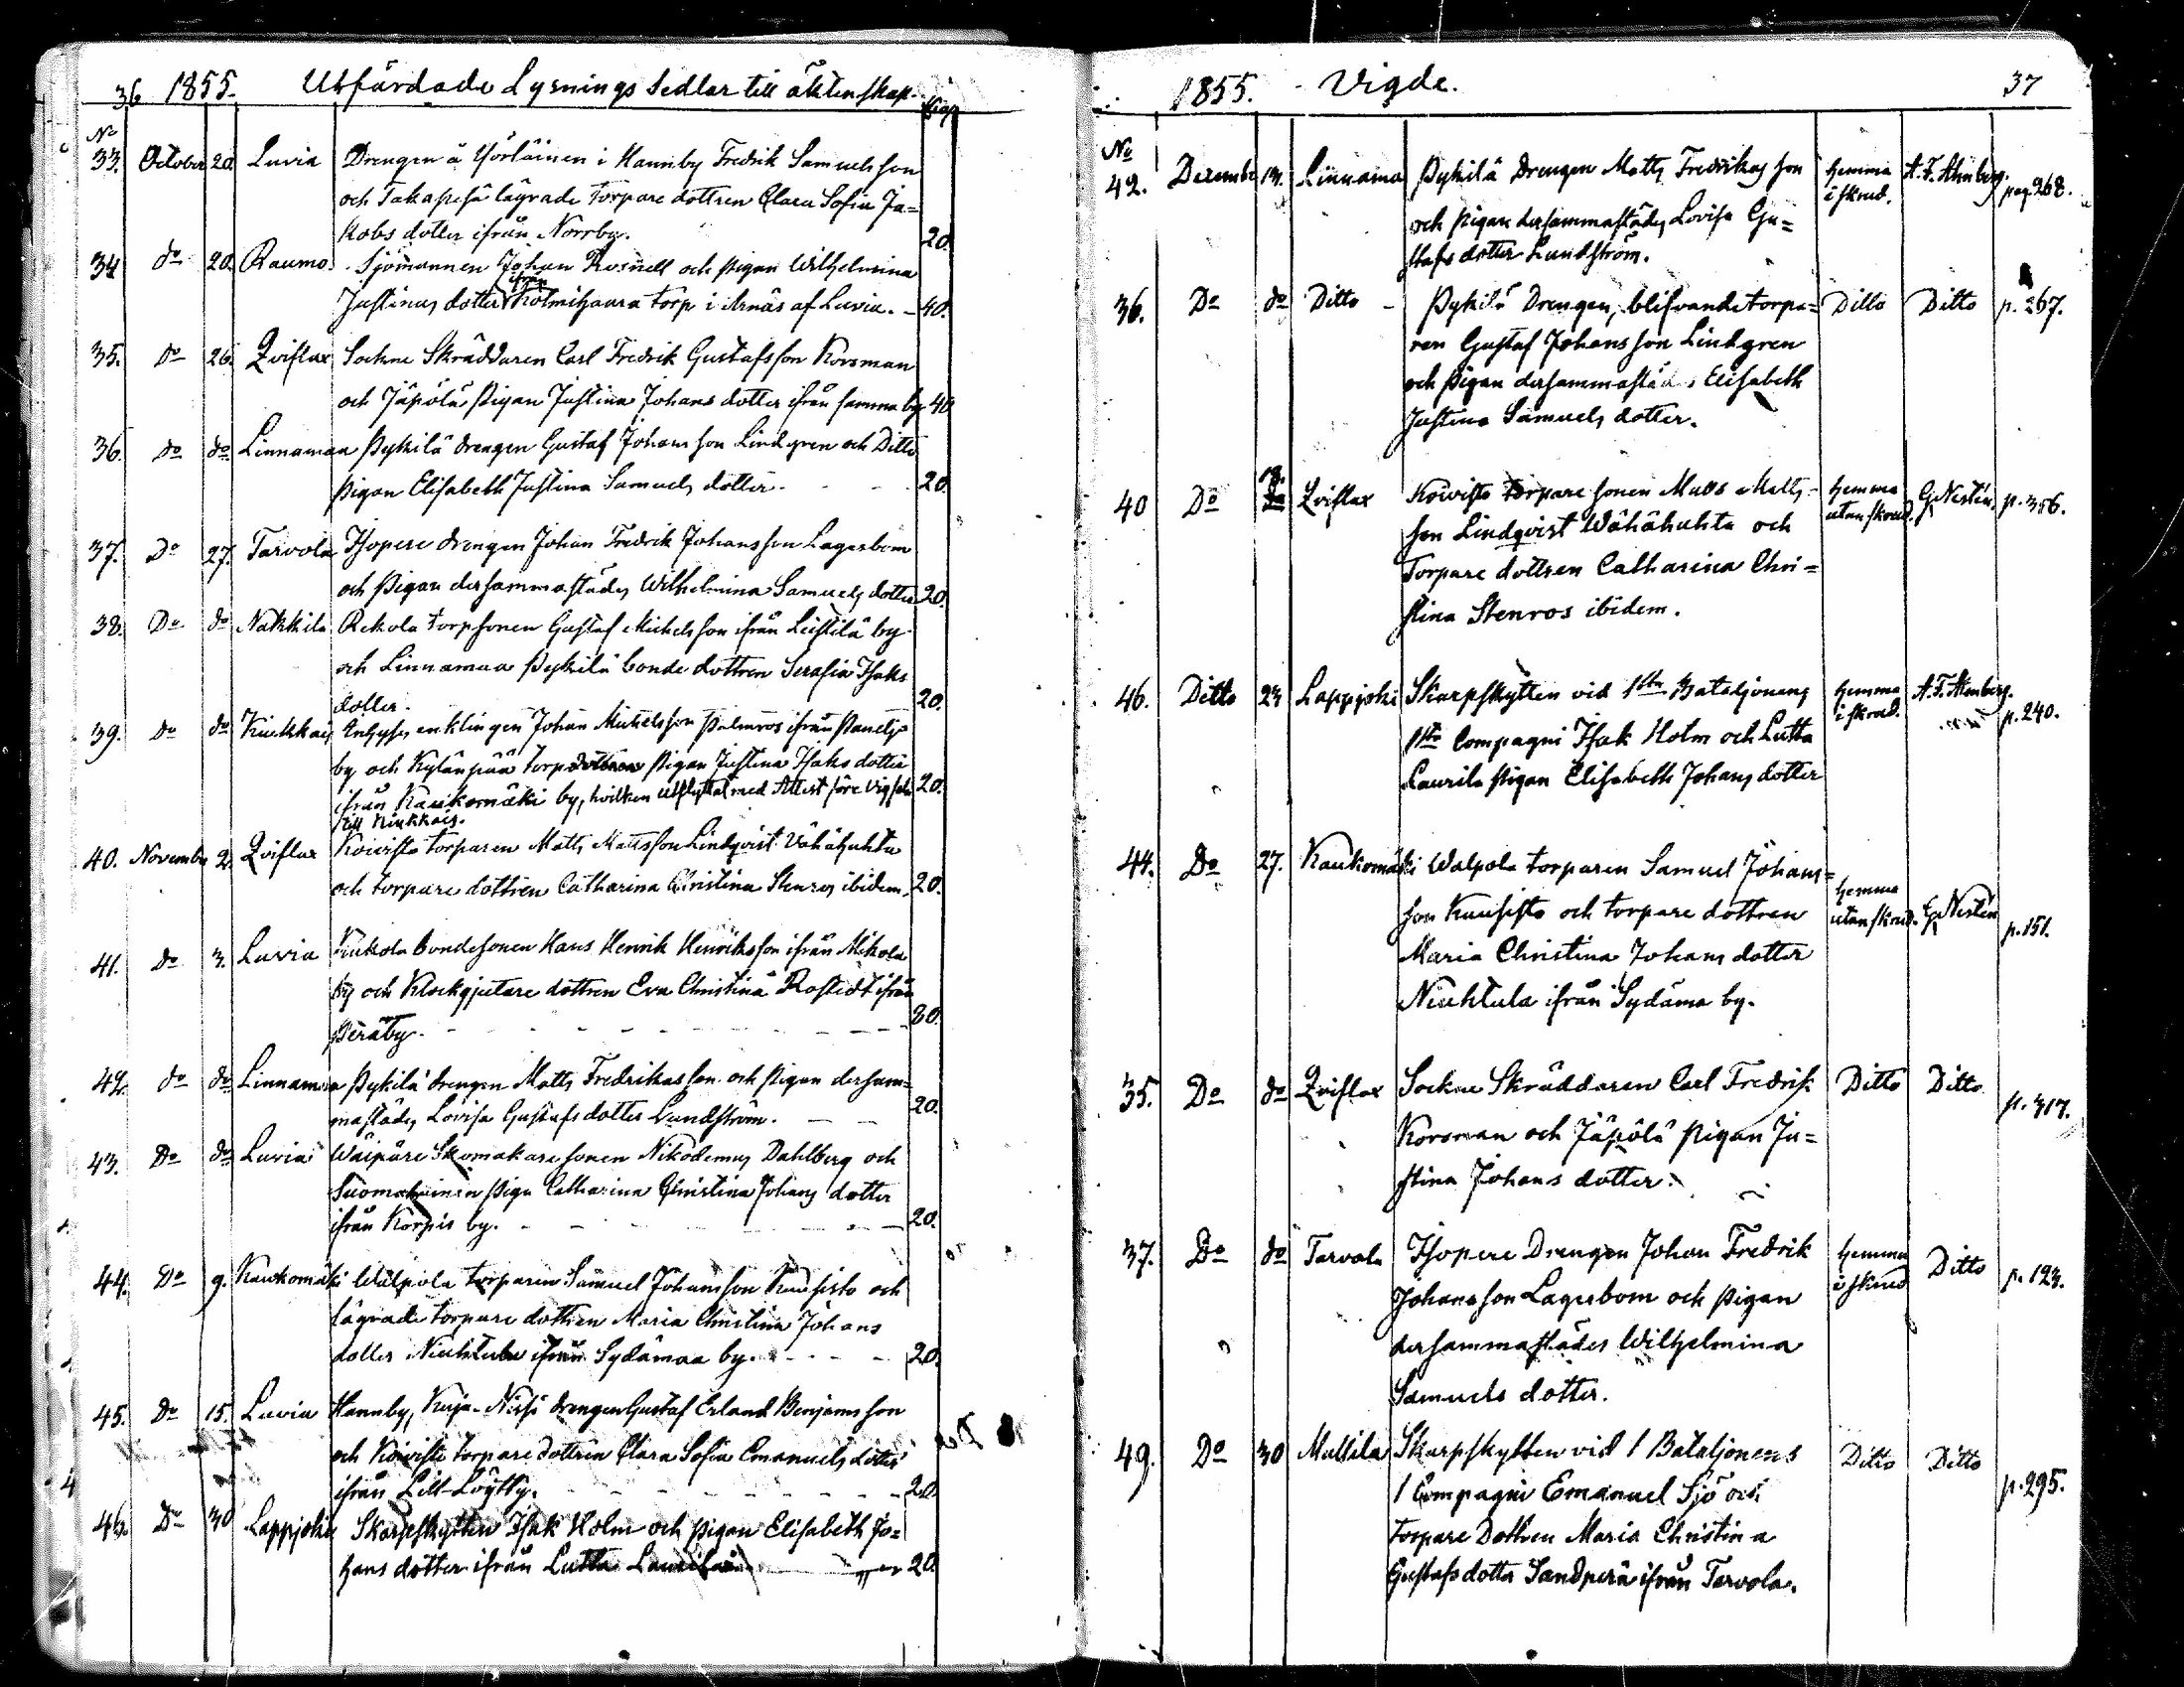 36 1855. Utfärdade Lysnings Sedlar till äktenskap.
No
33. October 20. Luvia Drengen å Yörläinen i Hannby Fredrik Samuelsson
och Takapesä lägrade torpare dottren Clara Sofia Ja=
kobs dotter ifrån Norrby. 20.
34 do 20. Raumo. Sjömannen Johan Rosnell och pigan Wilhelmina
Justinus dotter ifrån Kolmihaara torp i Arnäs af Luvia. 40.
35. Do 26. Qviflax Sockne Skräddaren Carl Fredrik Gustafsson Korsman
och Jäpölä pigan Justina Johans dotter ifrån samma by 40
36. do do Linnamaa Pykilä drengen Gustaf Johansson Lindgren och Ditto
pigan Elisabeth Justina Samuels dotter. 20.
37. Do 27. Tarvola Isopere drengen Johan Fredrik Johansson Lagerbom
och pigan dersammastädes Wilhelmina Samuels dotter 20.
38. Do do Nakkila Rekola torpsonen Gustaf Mickelsson ifrån Leistilä by
och Linnamaa Pykilä bonde dottren Serafia Isaks
dotter. 20.
39. do do Kiukkais enklingen Johan Mickelsson Palmros ifrån Panelia
by och Kylänpää torp pigan Justina Isaks dotter
ifrån Kaukomäki by, hvilken utflyttat med Attest före vigseln 20.
till Kiukkais.
40. November 2. Qviflax Koivisto torparen Matts Mattsson Lindqvist Vähähuhta
och torpare dottren Catharina Christina Stenros ibidem. 20.
41. Do 3. Luvia Kukola bondesonen Hans Henrik Henriksson ifrån Mikola
by och Klockgjutare dottren Eva Christina Rostedt ifrån
Peräby. 80.
42. do do Linnamaa Pykilä drengen Matts Fredriksson och pigan dersam=
mastädes Lovisa Gustafs dotter Lundström. 20.
43. Do do Luvia Wäipäre Skomakare sonen Nikodemus Dahlberg och
Suomalainen piga Catharina Christina Johans dotter
ifrån Korpis by. 20.
44. Do 9. Kaukomäki Walpola torparen Samuel Johansson Kuusisto och
lägrade torpare dottren Maria Christina Johans
dotter Niuhtula ifrån Sydämaa by. 20.
45. Do 15. Luvia Hannby, Kuja-Nissi drengen Gustaf Erland Benjamsson
och Koivisto torpare dottren Clara Sofia Emanuels dotter
ifrån Lill-Löytty. 20.
46. Do 30 Lappjoki Skarpskytten Isak Holm och pigan Elisabeth Jo=
hans dotter ifrån Lutta Laurila 20.
1855. Vigde. 37
No
42. December 13. Linnamaa Pykilä Drengen Matts Fredriksson hemma i skrud. A. F. Almberg. pag. 268.
och pigan dersammastädes Lovisa Gu=
stafs dotter Lundström.
36. Do do Ditto - Pykilä Drengen, blifvande torpa= Ditto Ditto p. 267.
ren Gustaf Johansson Lindgren
och pigan dersammastädes Elisabeth
Justina Samuels dotter.
40 Do Qviflax Koivisto torpare sonen Matts Matts= hemma utan skrud. G. Nestén. p. 356.
son Lindqvist Wähähuhta och
Torpare dottren Catharina Chri=
stina Stenros ibidem.
46. Ditto 23 Lappjoki Skarpskytten vid 1sta Bataljonens hemma i skrud. A. F. Almberg. p. 240.
1sta Compagni Isak Holm och Lutta
Laurila pigan Elisabeth Johans dotter
44. Do 27. Kaukomäki Walpola torparen Samuel Johans=
son Kuusisto och torpare dottren hemma utan skrud. G. Nestén p. 151.
Maria Christina Johans dotter
Niuhtula ifrån Sydäma by.
35. Do do Qviflax Sockne Skräddaren Carl Fredrik Ditto Ditto p. 317.
Korsman och Jäpölä pigan Ju=
stina Johans dotter.
37. Do do Tarvola Isopere Drengen Johan Fredrik hemma i skrud Ditto p. 123.
Johansson Lagerbom och pigan
dersammastädes Wilhelmina
Samuels dotter.
49. Do 30 Mullila Skarpskytten vid 1 Bataljonens Ditto Ditto p. 295.
1 Compagni Emanuel Sjö och
torpare Dottren Maria Christina
Gustafs dotter Sandperä ifrån Tarvola.